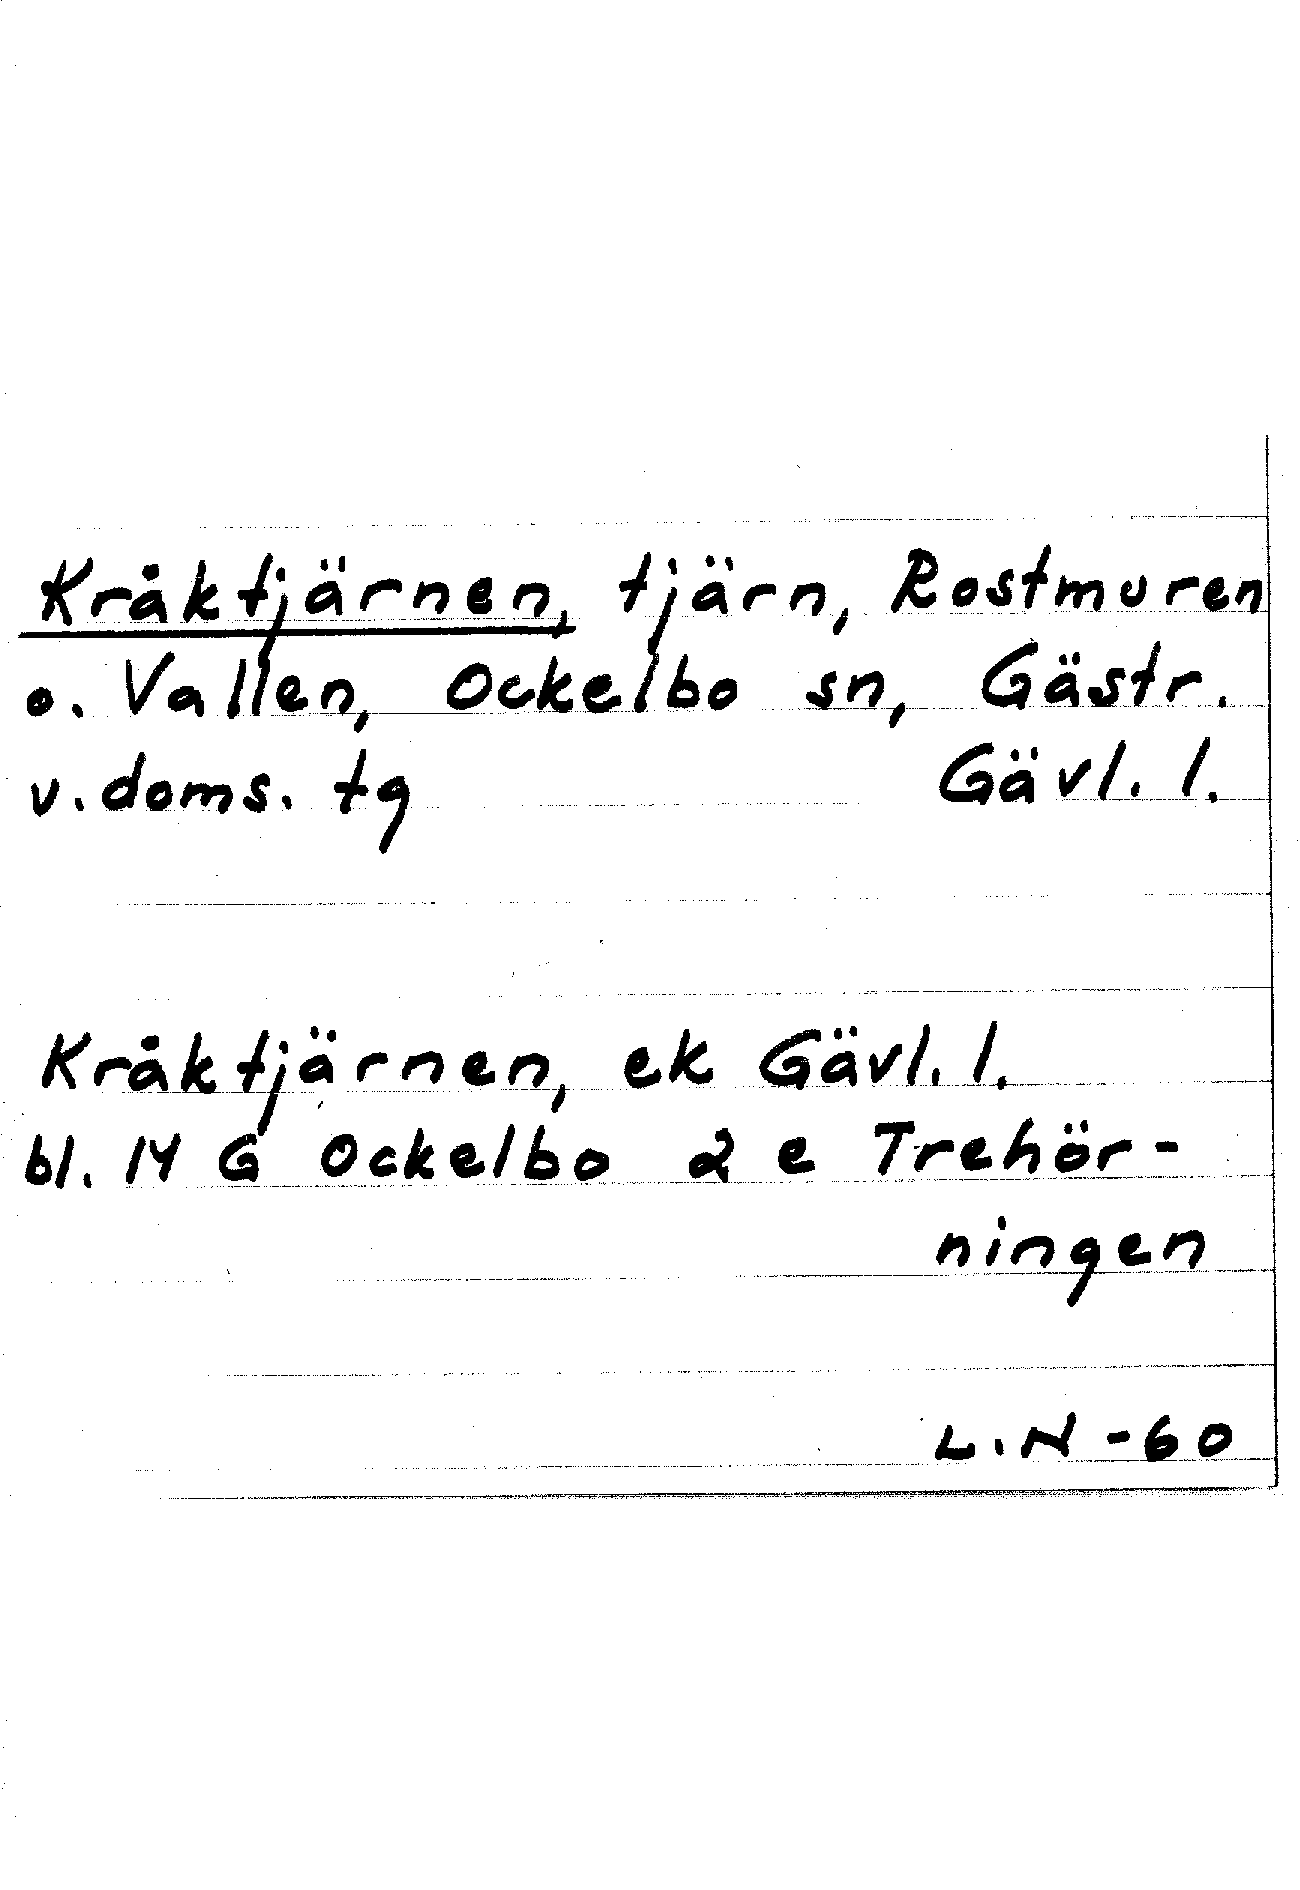 Kråktjärnen, tjärn, Rostmuren
o. Vallen, Ockelbo sn, Gästr.
v. doms. tg Gävl. l.
Kråktjärnen, ek Gävl. l.
bl. 14 G Ockelbo 2 e Trehör-
ningen
L.N -60